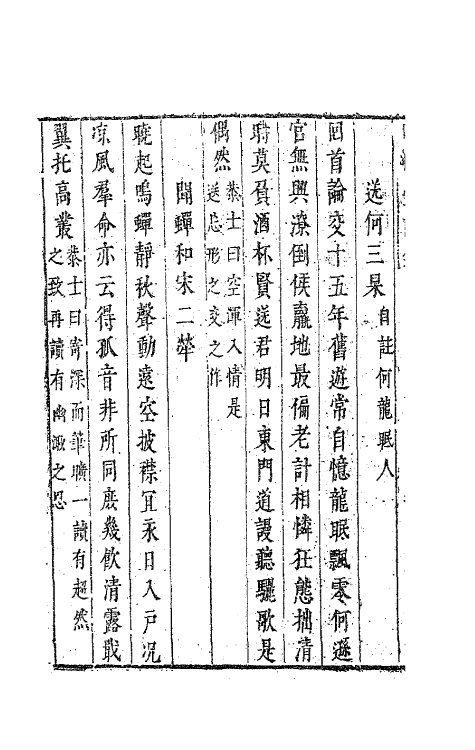 送何三杲自註何龍眠人
回首論交十五年舊遊常自憶龍眠飄零何遜
官無興潦倒侯嬴地最偏老計相憐狂態拙清
時莫負酒杯賢送君明日東門道謾聽驪歌是
偶然恭士曰空渾入情是送忘形之交之作
聞蟬和宋二犖
曉起鳴蟬靜秋聲動遠空披襟宜永日入戶况
凉風羣命亦云得孤音非所同庶幾飲清露戢
翼托高叢恭士曰寄深而筆曠一讀有超然之致再讀有幽諷之思